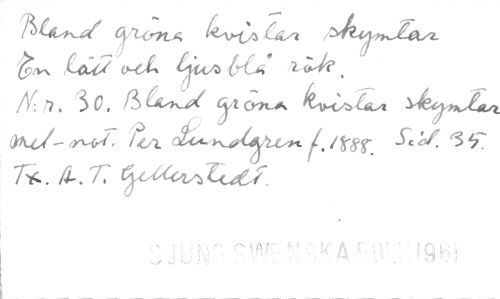 Bland gröna kvistar skymtar
En lätt och ljusblå rök.
N:r. 30. Bland gröna kvistar skymtar
mel-not. Per Lundgren f. 1888. Sid. 35.
Tx. A. T. Gellerstedt.
SJUNG SWENSKA FOLK 1961